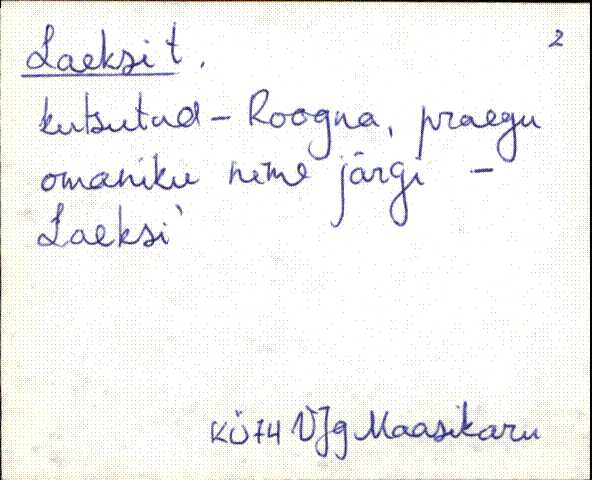 Laeksi t. 2
kutsutud - Roogna, praegu
omaniku nime järgi -
Laeksi
KÜ74 VJg Maasikaru